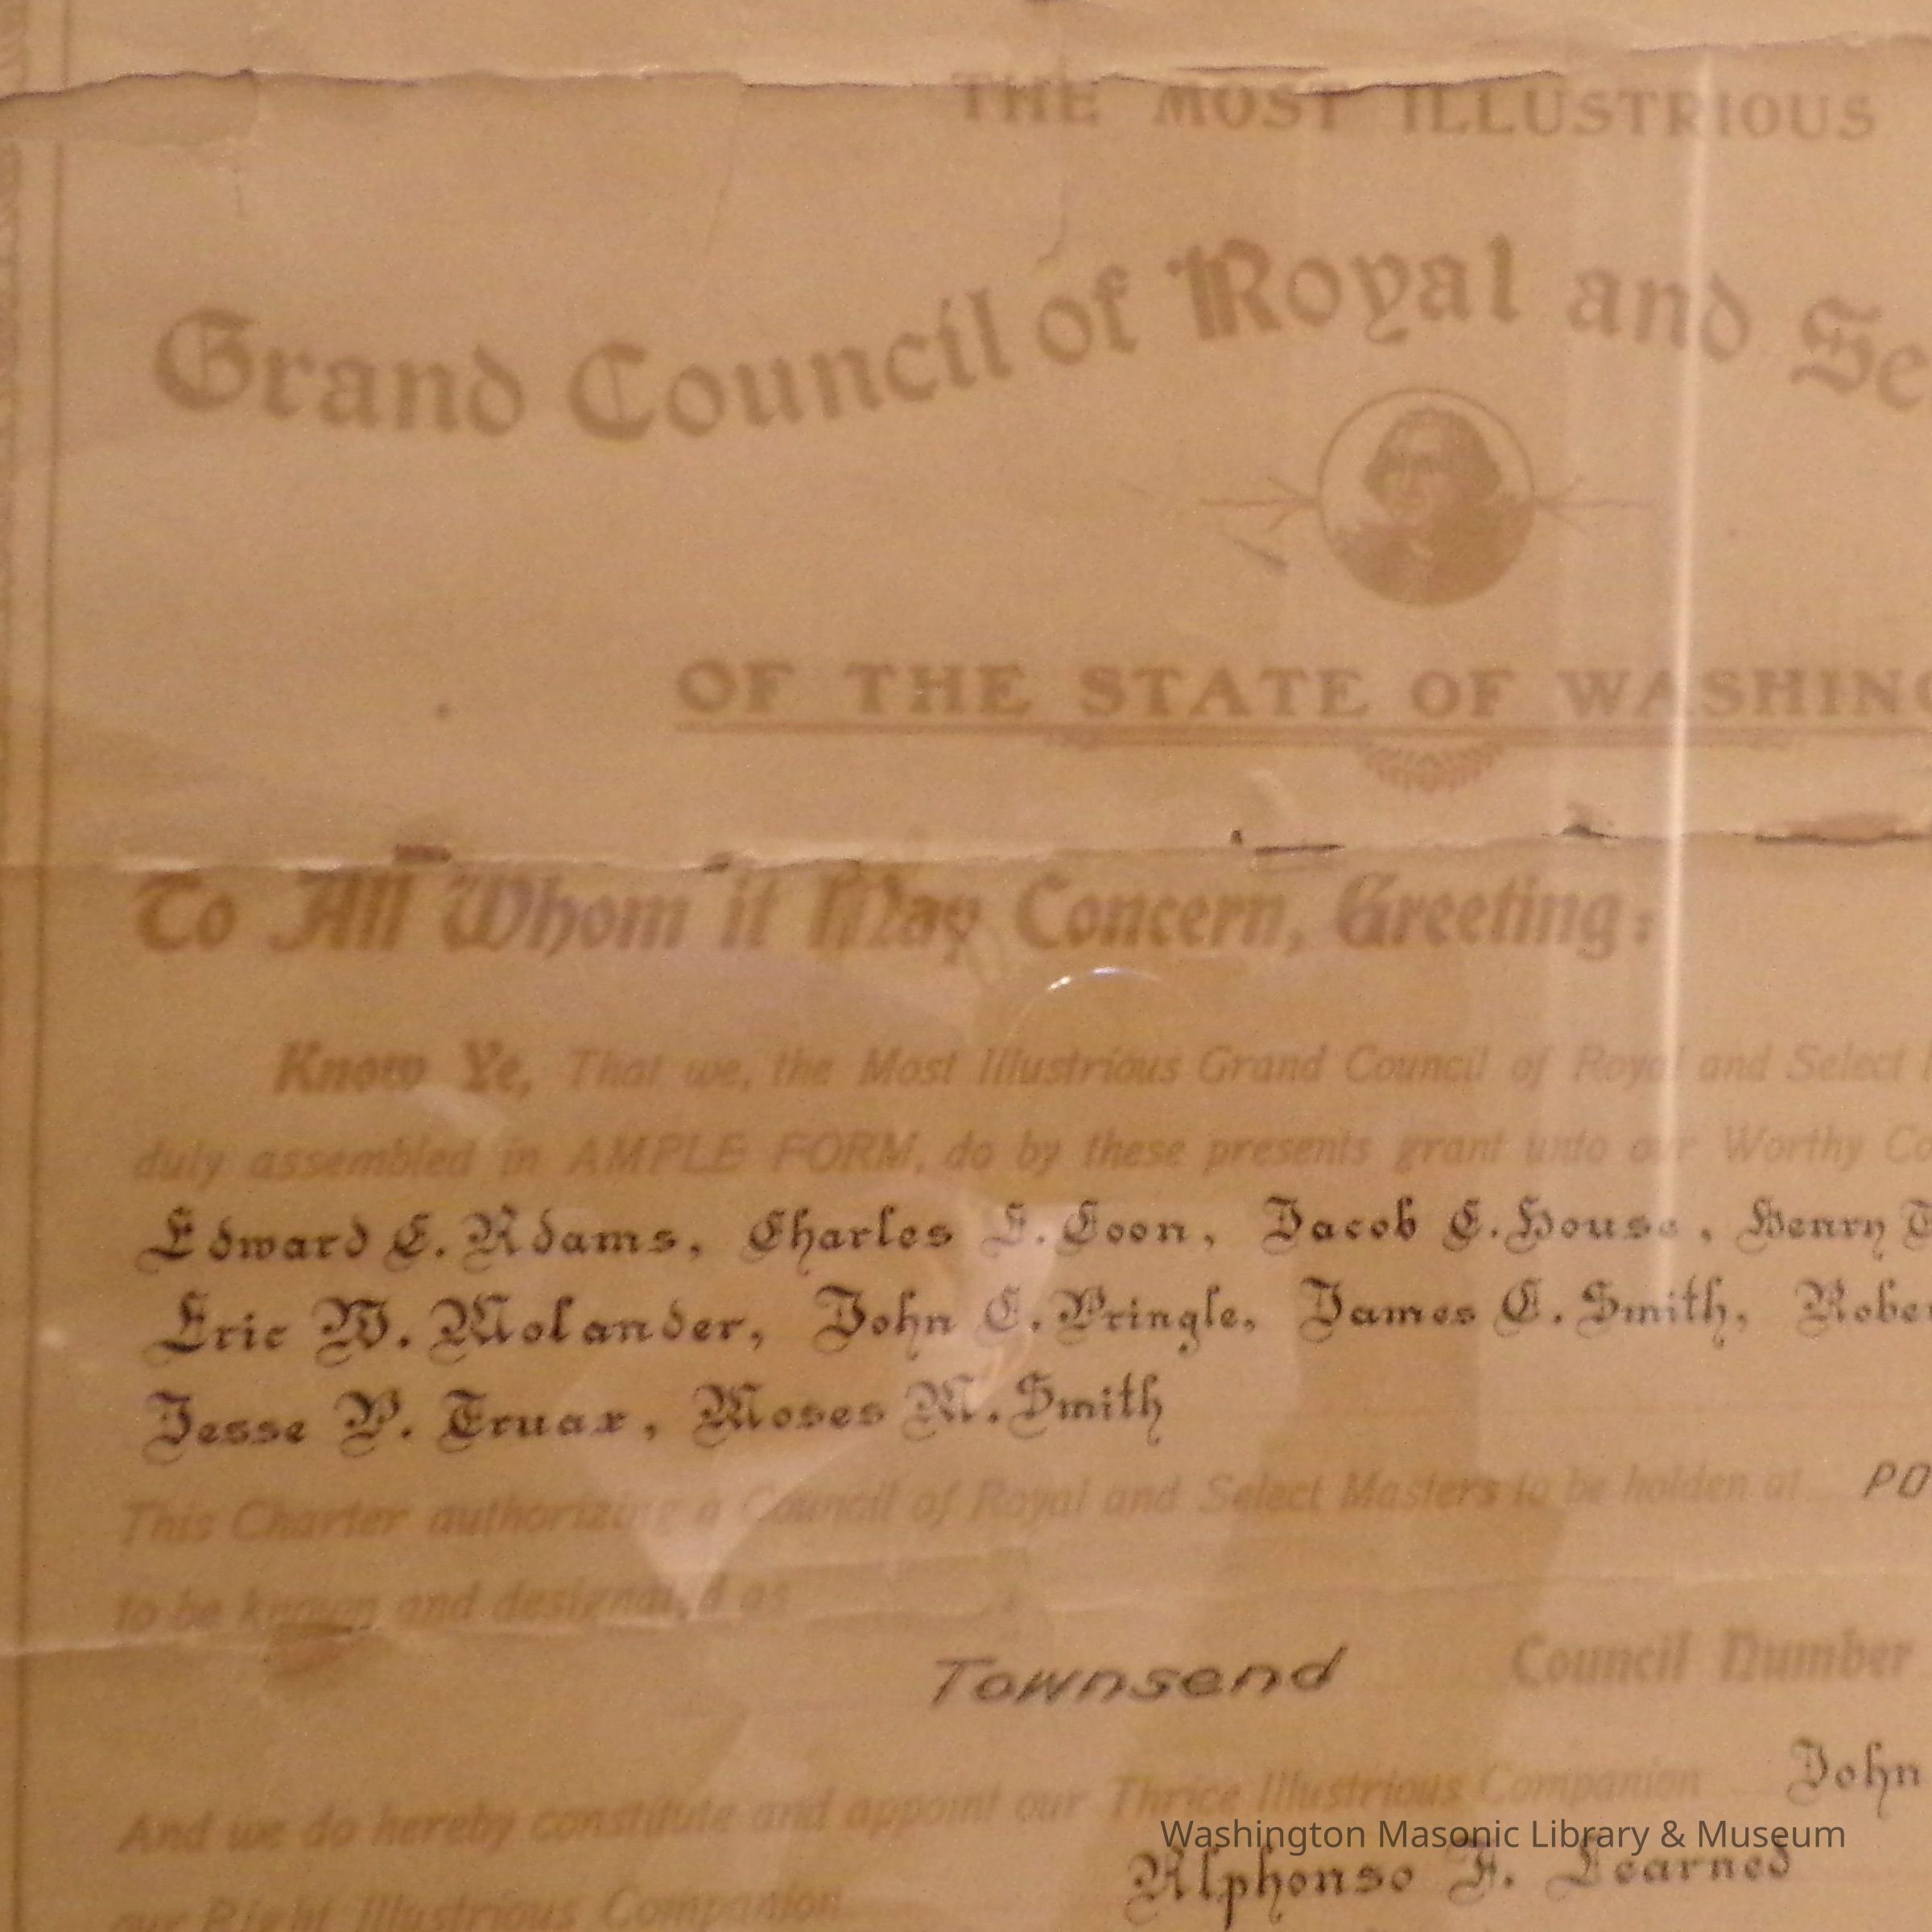 THE MOST ILLUSTRIOUS
Grand Council of Royal and Se
OF THE STATE OF WASHING
To All Whom it May Concern, Greeting:
Know Ye, That we, the Most Illustrious Grand Council of Royal and Select
duly assembled in AMPLE FORM, do by these presents grant unto our Worthy Co
Edward C. Adams, Charles E. Coon, Jacob C. House, Henry
Eric W. Molander, John C. Pringle, James C. Smith, Rober
Jesse P. Truax, Moses M. Smith
This Charter authorizing a Council of Royal and Select Masters to be holden at PO
to be known and designated as
Townsend Council Number
And we do hereby constitute and appoint our Thrice Illustrious Companion John
Washington Masonic Library & Museum
Alphonso F. Learned
our Right Illustrious Companion